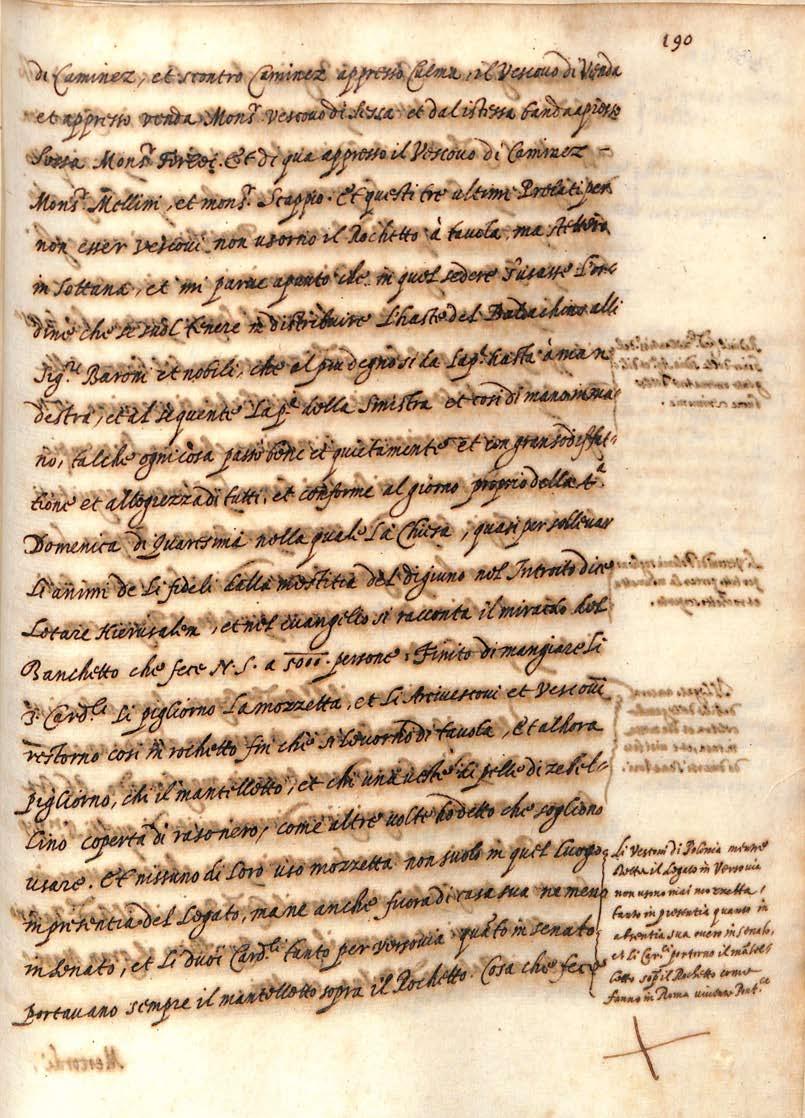 190
di Caminez, et scontro Caminez appresso Culma, il Vescovo di Venda
et appresso venda Mons.r vescovo di sessa et dal istessa banda apresso
Mons.r Et di qua appresso il Vescovo di Caminez
Mons.r Mellini, et mons.r Scappio. Et questi tre ultimi Prelati per
non esser vescovi non usorno il Rochetto à tavola ma
in sottana, et mi parue apunto che in quel sedere s'usasse l'or-
dine che si suol tenere in distribuire l'haste del Baldachino alli
Sig.ri Baroni et nobili, che al piu degno si da la p.a hasta à man
destra, et al sequente la p.a della sinistra et cosi di mano in ma-
no, talche ogni cosa passò bene et quietamente et con gran sodisfat-
tione et allegrezza di tutti, et conforme al giorno proprio della 4.a
Domenica di Quaresima nella quale La Chiesa, quasi per sollevar
Li animi de Li fideli dalla mestitia del digiuno nel Introito dice
Letare Hierusalem, et nel evangelio si racconta il miracolo del
Banchetto che fece N.S. a 5000. persone. Finito di mangiare Li
Card.li Li pigliorno La mozzetta, et Li Arcivescovi et Vescovi
restorno cosi in rochetto fin che si levorno di tavola, et alhora
pigliorno, chi il mantelletto, et chi una veste di pelle di zebel-
lino coperta di raso nero, come altre volte ho detto che sogliono
usare. Et nissuno di Loro usò mozzetta non solo in quel Luogo
in presentia del Legato, ma ne anche fuora di casa sua ne meno
in senato, et Li duoi Card.li tanto per versovia quãto in senato
portavano sempre il mantelletto sopra il Rochetto. Cosa che fece
Li Vescovi di Polonia mentre
stette il Legato in Versovia
non usorno mai mozzetta,
tanto in presentia quanto in
absentia sua overo in senato,
et Li Car.li portorno il mãtel-
letto sop.a il Rochetto come
fanno in Roma vivente Pont.ce